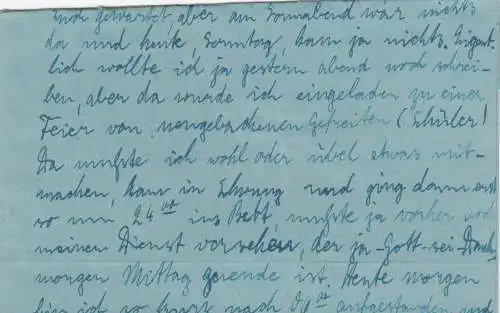 Euch gewartet aber am Sonnabend war nichts
da und heute, Sonntag, kam ja nichts. Eigent-
lich wollte ich ja gestern abend noch schrei-
ben, aber da wurde ich eingeladen zu einer
Feier von neugebackenen Gefreiten (Schüler)
Da mußte ich wohl oder übel etwas mit-
machen, kam in Schwung und ging dann erst
so um 24 00 ins Bett, mußte ja vorher noch
meinen Dienst versehen, der ja Gott-sei-Dank
morgen Mittag zuende ist. Heute morgen
bin ich so kurz nach 09 00 aufgestanden und